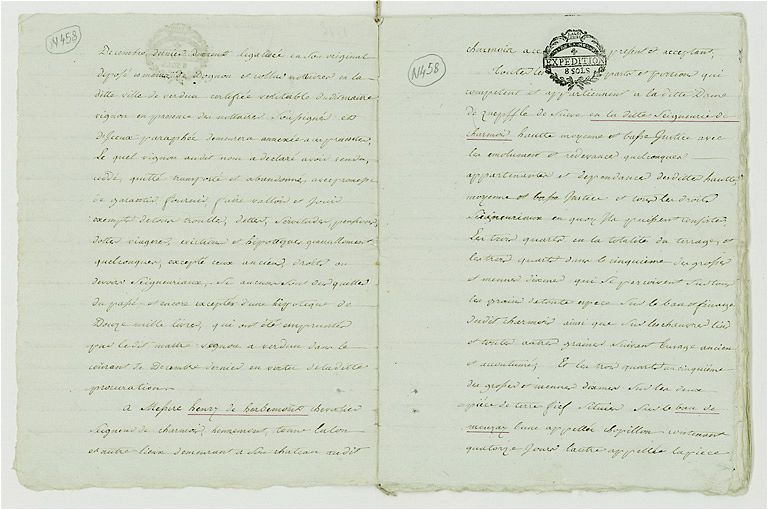 N458
Decembre dernier dument legalisée en son original
deposé es mains de Dognon et rollin notaires en la
ditte ville de verdun certifiée veritable du dit maitre
vignon en presence des notaires soussignés et
d'iceux paraphée demeurera annexée aux presentes,
Le quel vignon audit nom a déclaré avoir vendu,
cedé, quitté transporté et abandonné, avec promesse
de garantir fournir, faire valloir et jouir
exempts de tous trouble, dettes, servitudes pensions,
dottes viagere, evictions et hypotteques generallement
quelconques, excepté ceux anciens, droits ou
devoirs Seigneuriaux, si aucuns sont dus quittes
du passé et encore excepter d'une hypotteque de
Douze mille livres, qui ont été empruntés
par le dit maitre vignon a verdun dans le
courant de Decembre dernier en vertu de la ditte
procuration.
a Messire henry de herbemont chevalier
Seigneur de charmois,
et autre lieux demeurant a son chateau audit
N458
charmois a ce present et acceptant,
EXPEDITION
8 SOLS
Toutes les parts et portion qui
competent et appartiennent a la ditte Dame
de en la ditte Seigneurie de
charmois hautte moyenne et basse Justice avec
les emolument et redevance quelconques
appartenantes et dependance desditte hautte,
moyenne et basse Justice et tous les droits
Seigneuriaux en quoy ils puissent consister.
Les trois quarts en la totalité du terrage, et
les trois quarts dans le cinquieme des grosses
et menues dixmes qui se perçoivent sur tous
les grains de toute espece sur le ban et finage
dudit charmois ainsi que sur les chanvre lins
et toutes autres graines suivant l'usage ancien
et accoutumé; Et les trois quarts au cinquieme
des grosses et menues dixmes sur les deux
piéce de terre fief situées sur le ban de
mouzay l'une appellée contenant
quatorze Jours l'autre appellée la piece